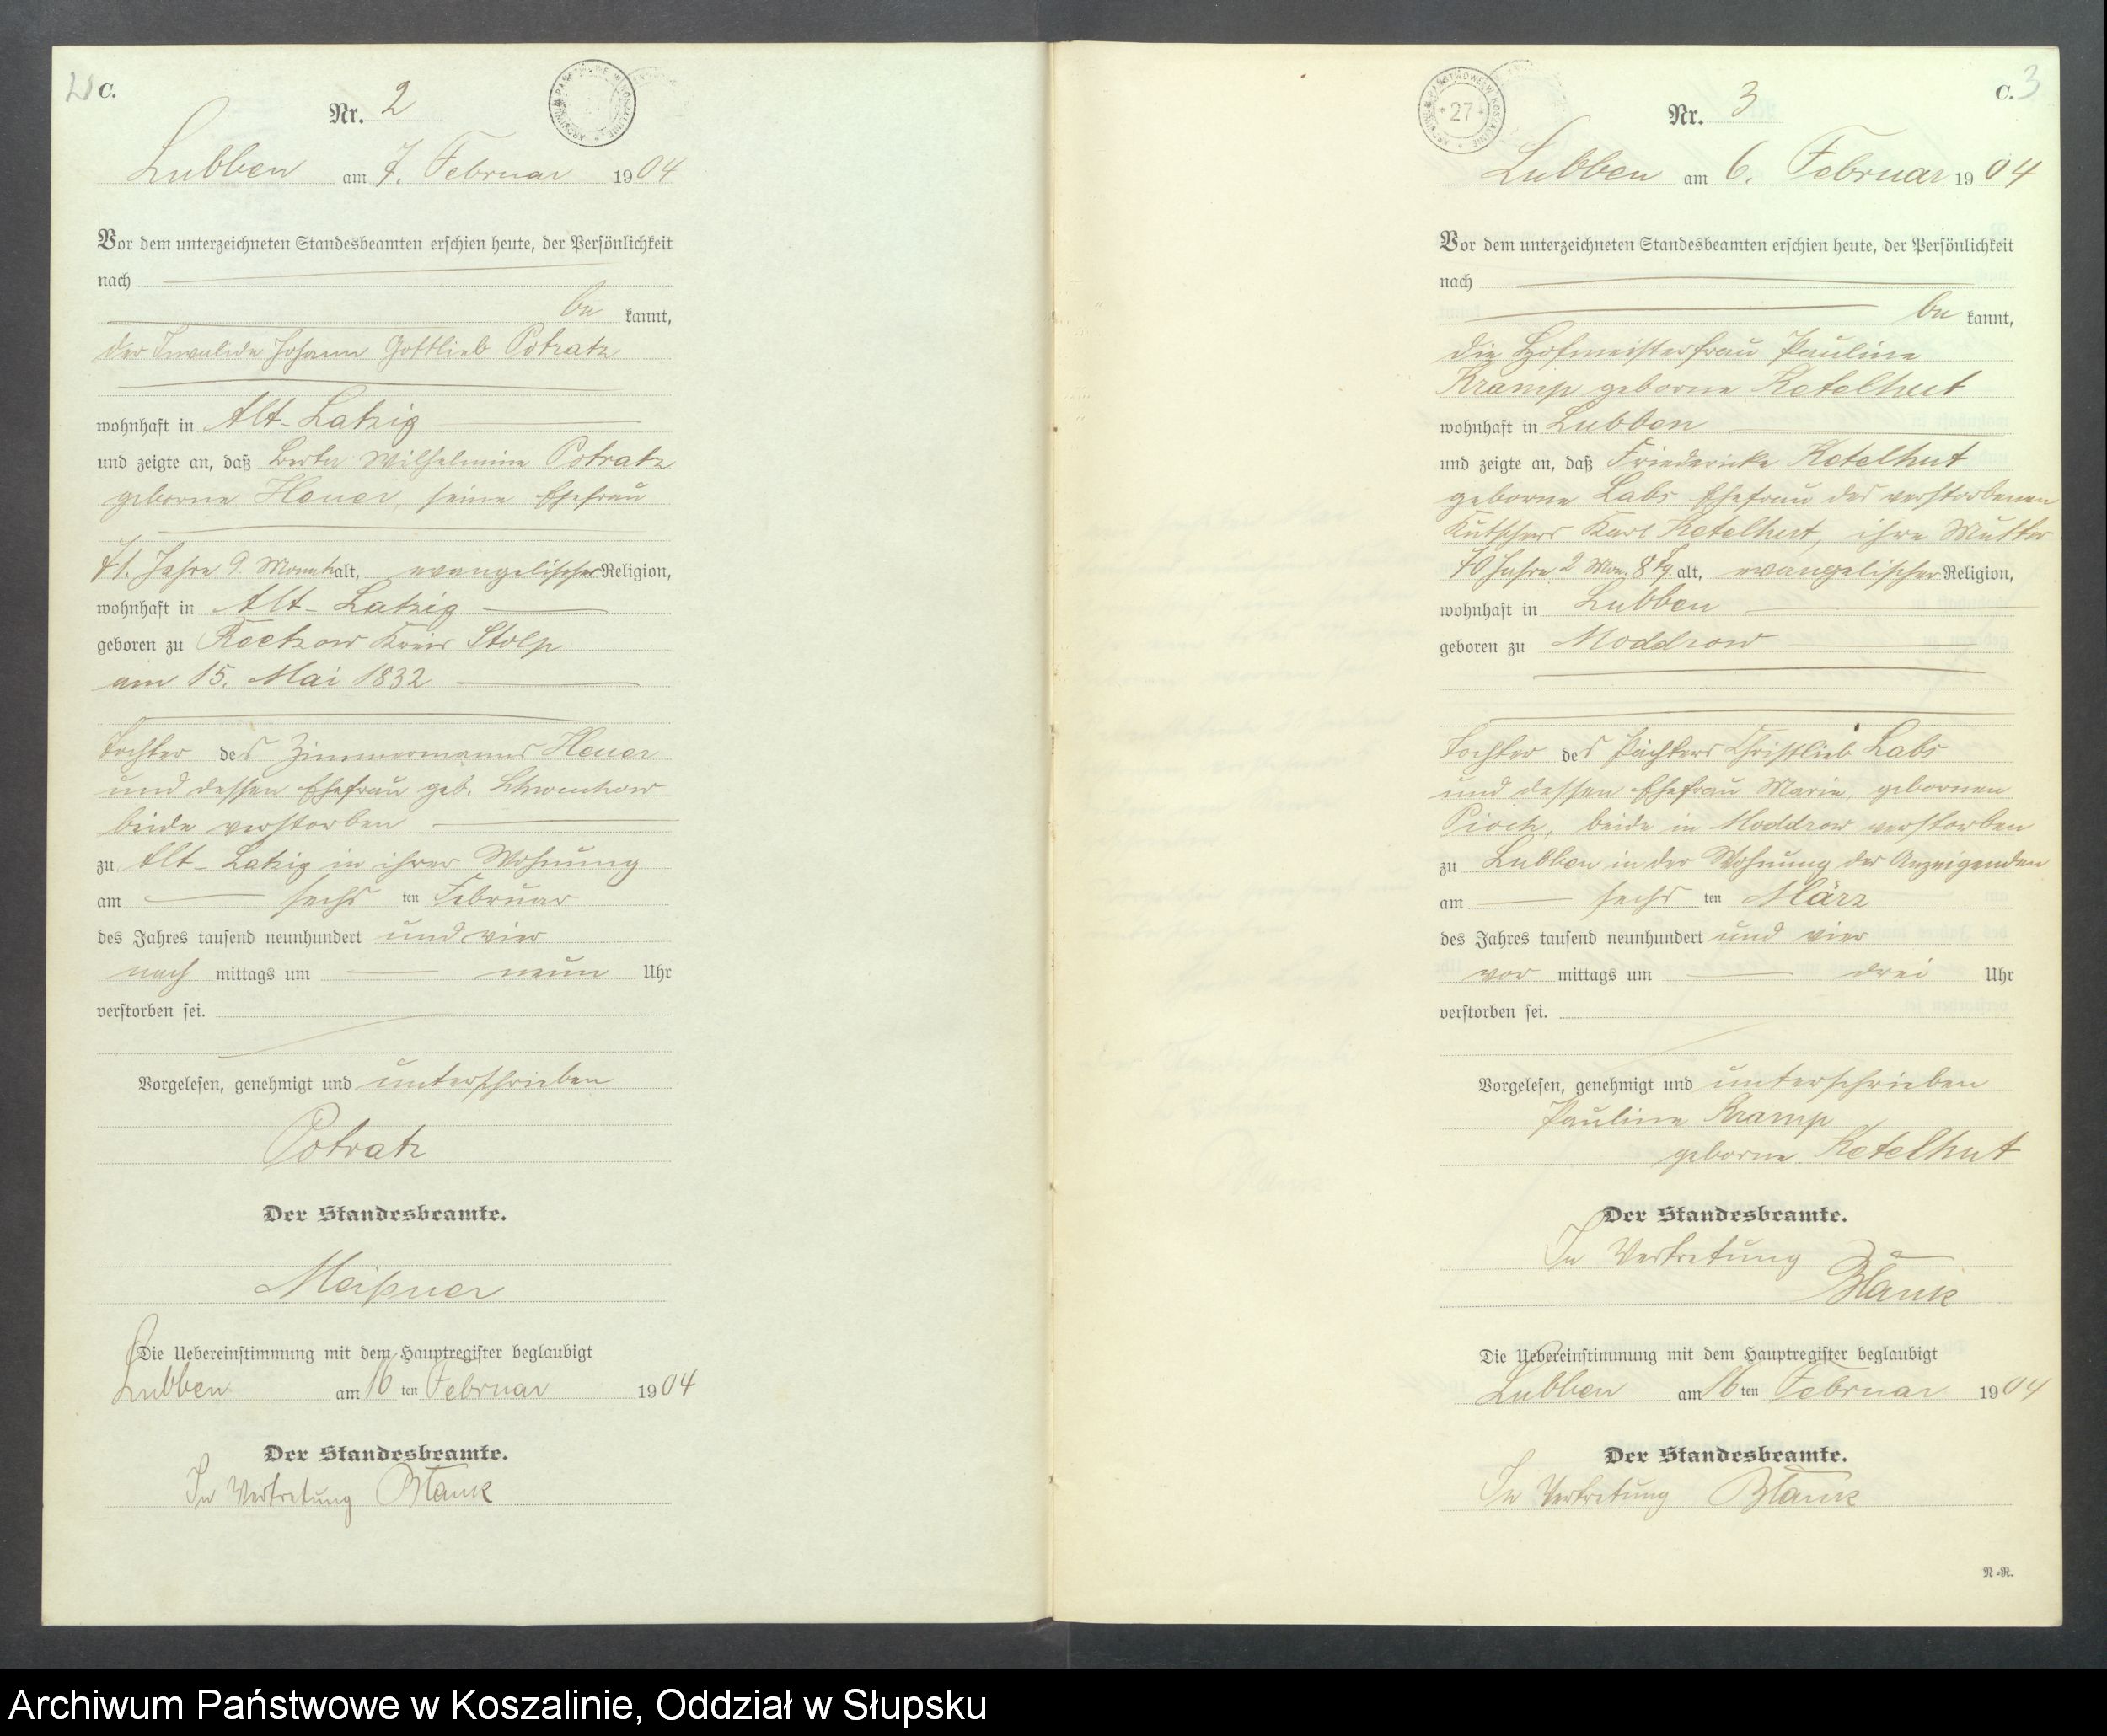 C.
Nr. 2
Lubben am 7. Februar 1904
Vor dem unterzeichneten Standesbeamten erschien heute, der Persönlichkeit
nach
be kannt,
der Invalide Johann Gottlieb Potratz
wohnhaft in Alt-Latzig
und zeigte an, daß Berta Wilhelmine Potratz
geborne Heuer, seine Ehefrau
71. Jahre 9 Monate alt, evangelischer Religion,
wohnhaft in Alt-Latzig
geboren zu Kreis Stolp
am 15. Mai 1832
Tochter des Zimmermanns Heuer
und dessen Ehefrau geb.
beide verstorben
zu Alt-Latzig in ihrer Wohnung
am sechs ten Februar
des Jahres tausend neunhundert und vier
nach mittags um neun Uhr
verstorben sei.
Vorgelesen, genehmigt und unterschrieben
Potratz
Der Standesbeamte.
Meißner
Die Uebereinstimmung mit dem Hauptregister beglaubigt
Lubben am 16 ten Februar 1904
Der Standesbeamte.
In Vertretung Blank
C. 3
27
Nr. 3
Lubben am 6. Februar 1904
Vor dem unterzeichneten Standesbeamten erschien heute, der Persönlichkeit
nach
be kannt,
die Hofmeisterfrau Pauline
Kramp geborne Ketelhut
wohnhaft in Lubben
und zeigte an, daß Friedericke Ketelhut
geborne Labs Ehefrau des verstorbenen
Kutschers Karl Ketelhut, ihre Mutter
70 Jahre 2 Mon. 8 Tg. alt, evangelischer Religion,
wohnhaft in Lubben
geboren zu Moddrow
Tochter des Pächters Christlieb Labs
und dessen Ehefrau Marie, gebornen
Pioch, beide in Moddrow verstorben
zu Lubben in der Wohnung der Anzeigenden
am sechs ten März
des Jahres tausend neunhundert und vier
vor mittags um drei Uhr
verstorben sei.
Vorgelesen, genehmigt und unterschrieben
Pauline Kramp
geborne Ketelhut
Der Standesbeamte.
In Vertretung
Blank
Die Uebereinstimmung mit dem Hauptregister beglaubigt
Lubben am 16 ten Februar 1904
Der Standesbeamte.
In Vertretung Blank
N.=R.
Archiwum Państwowe w Koszalinie, Oddział w Słupsku